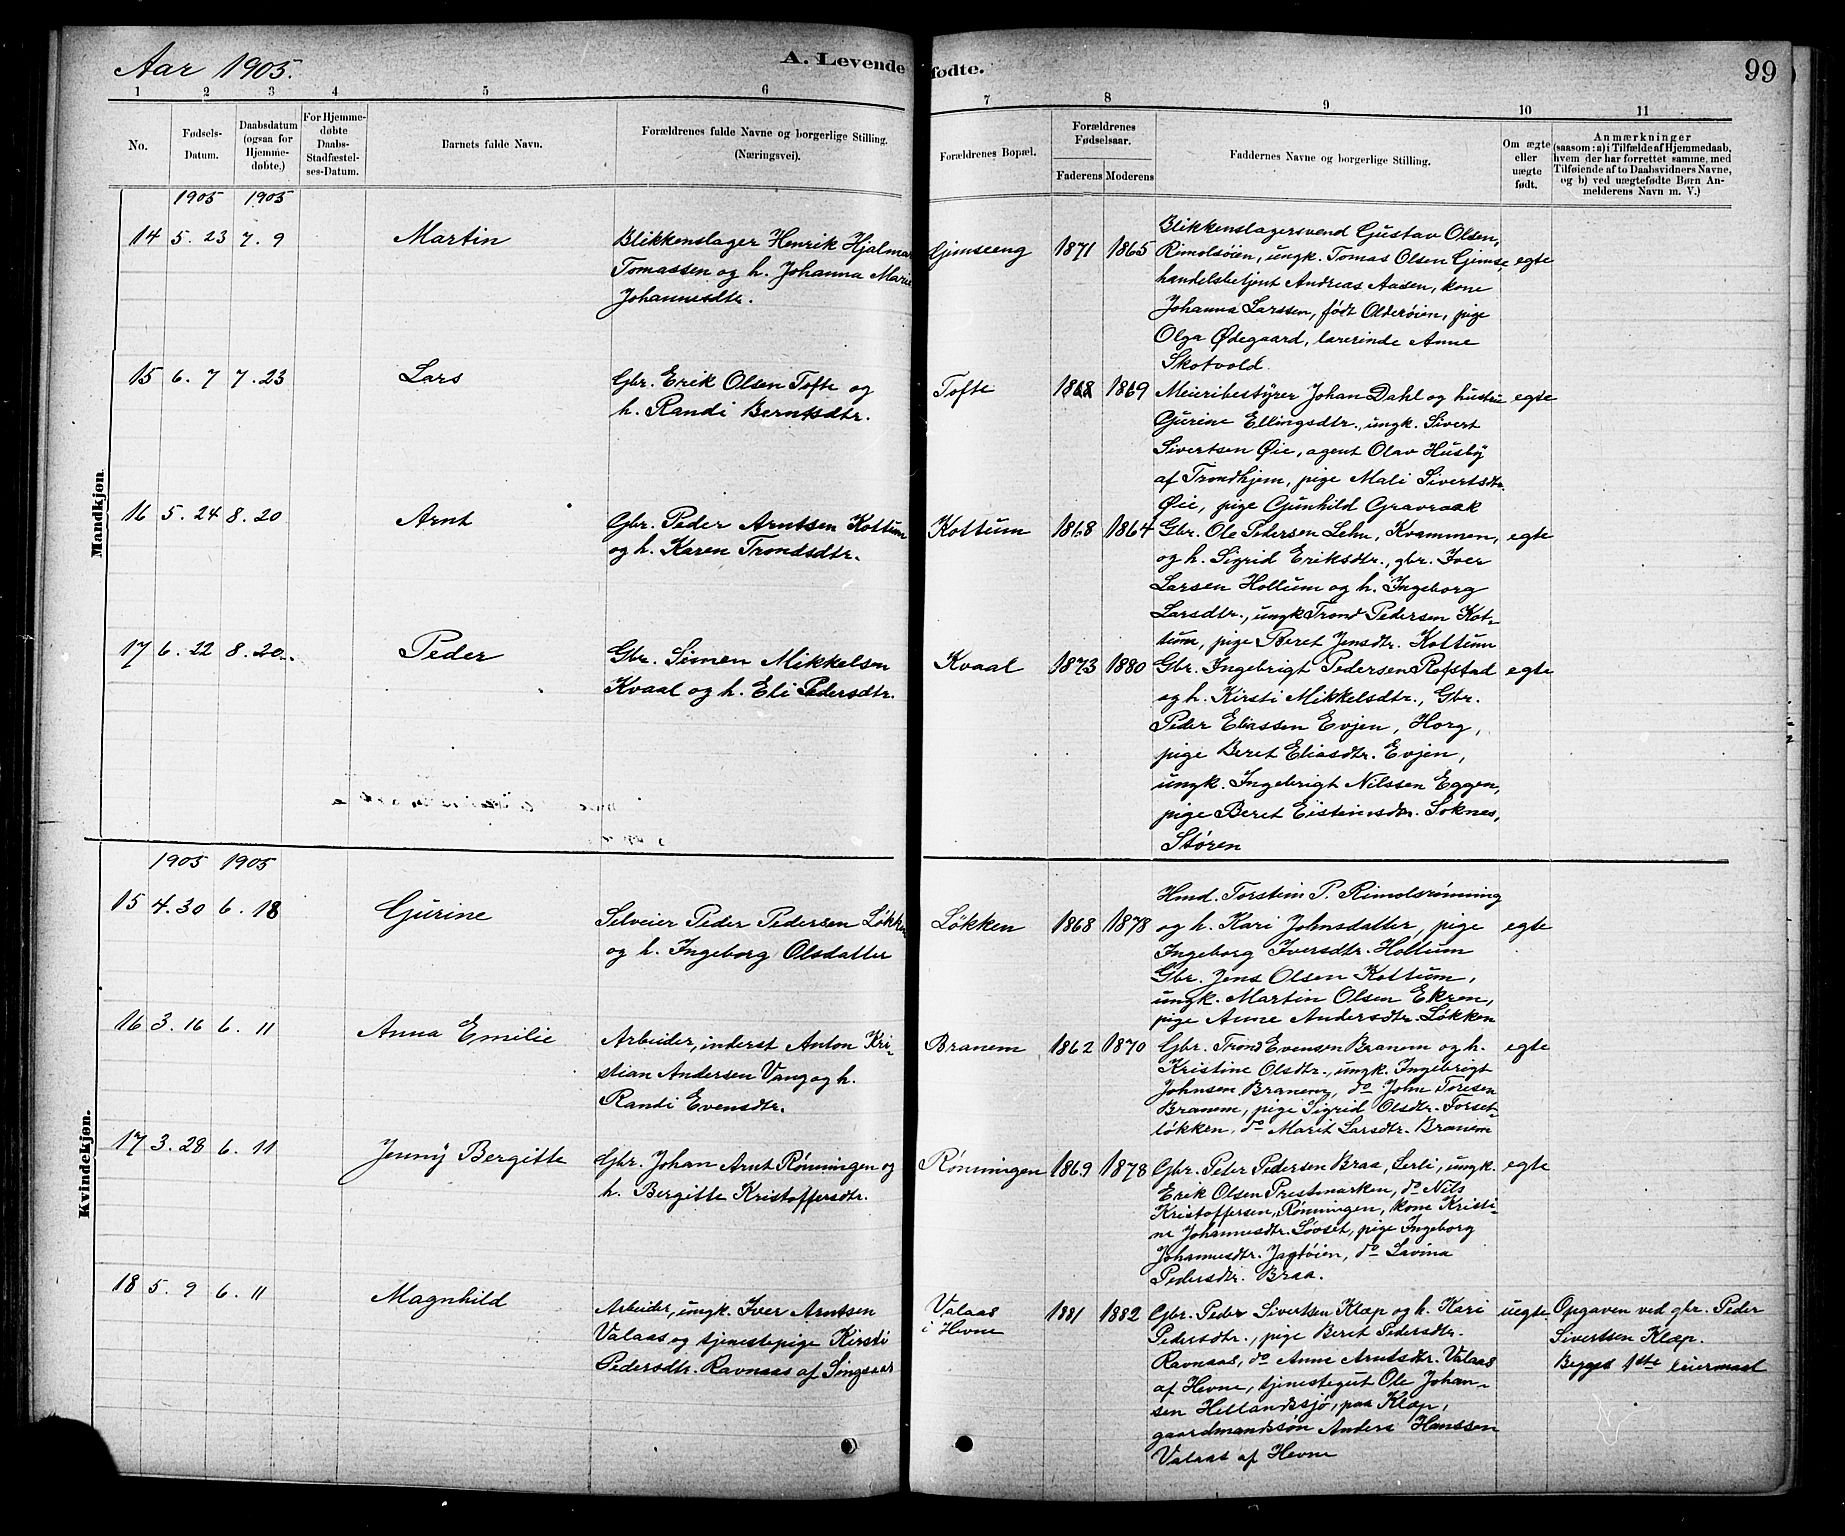 Aar 1905.
A. Levende fødte.
99
1 2 3 4 5 6 7 8 9 10 11
No.
Fødsels-
Datum.
Daabsdatum
(ogsaa for
Hjemme-
døbte.)
For Hjemme-
døbte
Daabs-
Stadfæstel-
ses-Datum.
Barnets fulde Navn.
Forældrenes fulde Navne og borgerlige Stilling.
(Næringsvei).
Forældrenes Bopæl.
Forældrenes
Fødselsaar.
Faderens Moderens
Faddernes Navne og borgerlige Stilling.
Om ægte
eller
uægte
født.
Anmærkninger
(saasom: a) i Tilfælde af Hjemmedaab,
hvem der har forrettet samme, med
Tilføiende af to Daabsvidners Navne,
og b) ved uægtefødte Børn An-
melderens Navn m. V.)
Mandkjøn.
1905 1905
14 5. 23 7. 9 Martin
Blikkenslager Henrik Hjalmar
Tomassen og h. Johanna Marie
Johannesdtr.
Gimseeng 1871 1865
Blikkenslagersvend Gustav Olsen,
Rimolsøien, ungk. Tomas Olsen Gimse,
handelsbetjent Andreas Aasen, kone
Johanna Larssen, født Olderøien, pige
Olga Ødegaard, lærerinde Anne
Skotvold.
egte
15 6. 7 7. 23 Lars
Gbr. Erik Olsen Tofte og
h. Randi Berntsdtr.
Tofte 1868 1869
Meieribestyrer Johan Dahl og hustru
Gurine Ellingsdtr., ungk. Sivert
Sivertsen Øie, agent Olav Husby
af Trondhjem, pige Mali Sivertsdtr.
Øie, pige Gunhild Gravraak
egte
16 5. 24 8. 20 Arnt
Gbr. Peder Arntsen Kottum
og h. Karen Trondsdtr.
Kottum 1868 1864
Gbr. Ole Pedersen Lehn, Kvammen,
og h. Sigrid Eriksdtr., gbr. Iver
Larsen Hollum og h. Ingeborg
Larsdtr., ungk Trond Pedersen Kot-
tum, pige Beret Jensdtr. Kottum
egte
17 6. 22 8. 20. Peder
Gbr. Simen Mikkelsen
Kvaal og h. Eli Pedersdtr.
Kvaal 1873 1880
Gbr. Ingebrigt Pedersen Rofstad
og h. Kirsti Mikkelsdtr., Gbr.
Peder Eliassen Evjen, Horg,
pige Beret Eliasdtr. Evjen,
ungk. Ingebrigt Nilssen Eggen,
pige Beret Eisteinsdtr. Soknes,
Støren
egte
Kvindekjøn.
1905 1905
15 4. 30 6. 18 Gurine
Selveier Peder Pedersen Løkken
og h. Ingeborg Olsdatter
Løkken 1868 1878
Hmd. Torstein P. Rimolsrønning
og h. Kari Johnsdatter, pige
Ingeborg Iversdtr. Hollum
Gbr. Jens Olsen Kottum,
ungk. Martin Olsen Ekren,
pige Anne Andersdtr. Løkken
egte
16 3. 16 6. 11 Anna Emilie
Arbeider, inderst Anton Kri-
stian Andersen Vang og h.
Randi Evensdtr.
Branem 1862 1870
Gbr. Trond Evensen Branem og h.
Kristine Olsdtr., ungk. Ingebrigt
Johnsen Branem, do John Toresen
Branem, pige Sigrid Olsdtr. Forset-
løkken, do Marit Larsdtr. Branem
egte
17 3. 28 6. 11 Jenny Bergitte
Gbr. Johan Arnt Rønningen og
h. Bergitte Kristoffersdtr.
Rønningen 1869 1878
Gbr. Peter Pedersen Braa, Lerli, ungk.
Erik Olsen Prestmarken, do Nils
Kristoffersen, Rønningen, kone Kristi-
ne Johannesdtr. Løvset, pige Ingeborg
Johannesdtr. Jagtøien, do Lavina
Pedersdtr. Braa.
egte
18 5. 9 6. 11 Magnhild
Arbeider, ungk. Iver Arntsen
Valaas og tjenestepige Kirsti
Pedersdtr. Ravnaas af Singsaas
Valaas
i Hevne
1881 1882
Gbr. Peder Sivertsen Klæp og h. Kari
Pedersdtr., pige Beret Pedersdtr.
Ravnaas, do Anne Arntsdtr. Valaas
af Hevne, tjenestegut Ole Johan-
sen Hellandsjø, paa Klæp,
gaardmandssøn Anders Hanssen
Valaas af Hevne
uegte.
Opgaven ved gbr. Peder
Sivertsen Klæp.
Begges 1ste leiermaal